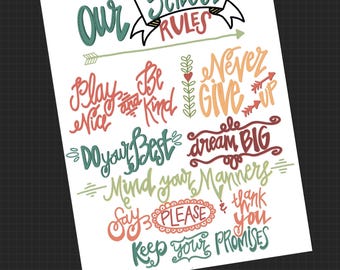 Our School
RULES
Play Nice and Be Kind
Never
GIVE UP
Do Your Best
dream BIG
Mind your Manners
Say PLEASE & thank you
Keep your PROMISES